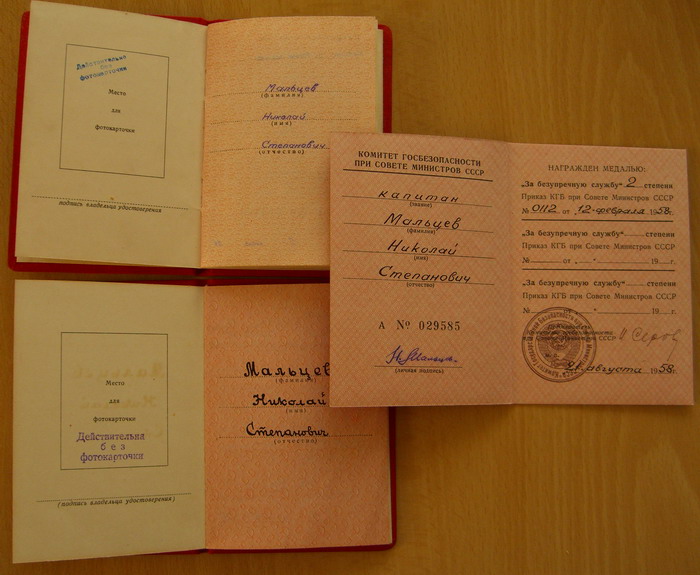 Действительна
без
фотокарточки
Место
для
фотокарточки
подпись владельца удостоверения
Мальцев
(фамилия)
Николай
(имя)
Степанович
(отчество)
Место
для
фотокарточки
Действительна
без
фотокарточки
(подпись владельца удостоверения)
Мальцев
(фамилия)
Николай
(имя)
Степанович
(отчество)
КОМИТЕТ ГОСБЕЗОПАСНОСТИ
ПРИ СОВЕТЕ МИНИСТРОВ СССР
капитан
(звание)
Мальцев
(фамилия)
Николай
(имя)
Степанович
(отчество)
А № 029585
(личная подпись)
НАГРАЖДЕН МЕДАЛЬЮ:
„За безупречную службу" 2 степени
Приказ КГБ при Совете Министров СССР
№ 0112 от 12 февраля 1958 г.
„За безупречную службу" степени
Приказ КГБ при Совете Министров СССР
№ от „ " 19 г.
„За безупречную службу" степени
Приказ КГБ при Совете Министров СССР
№ от „ " 19 г.
Совете Министров СССР И Серов
21 августа 1958 г.